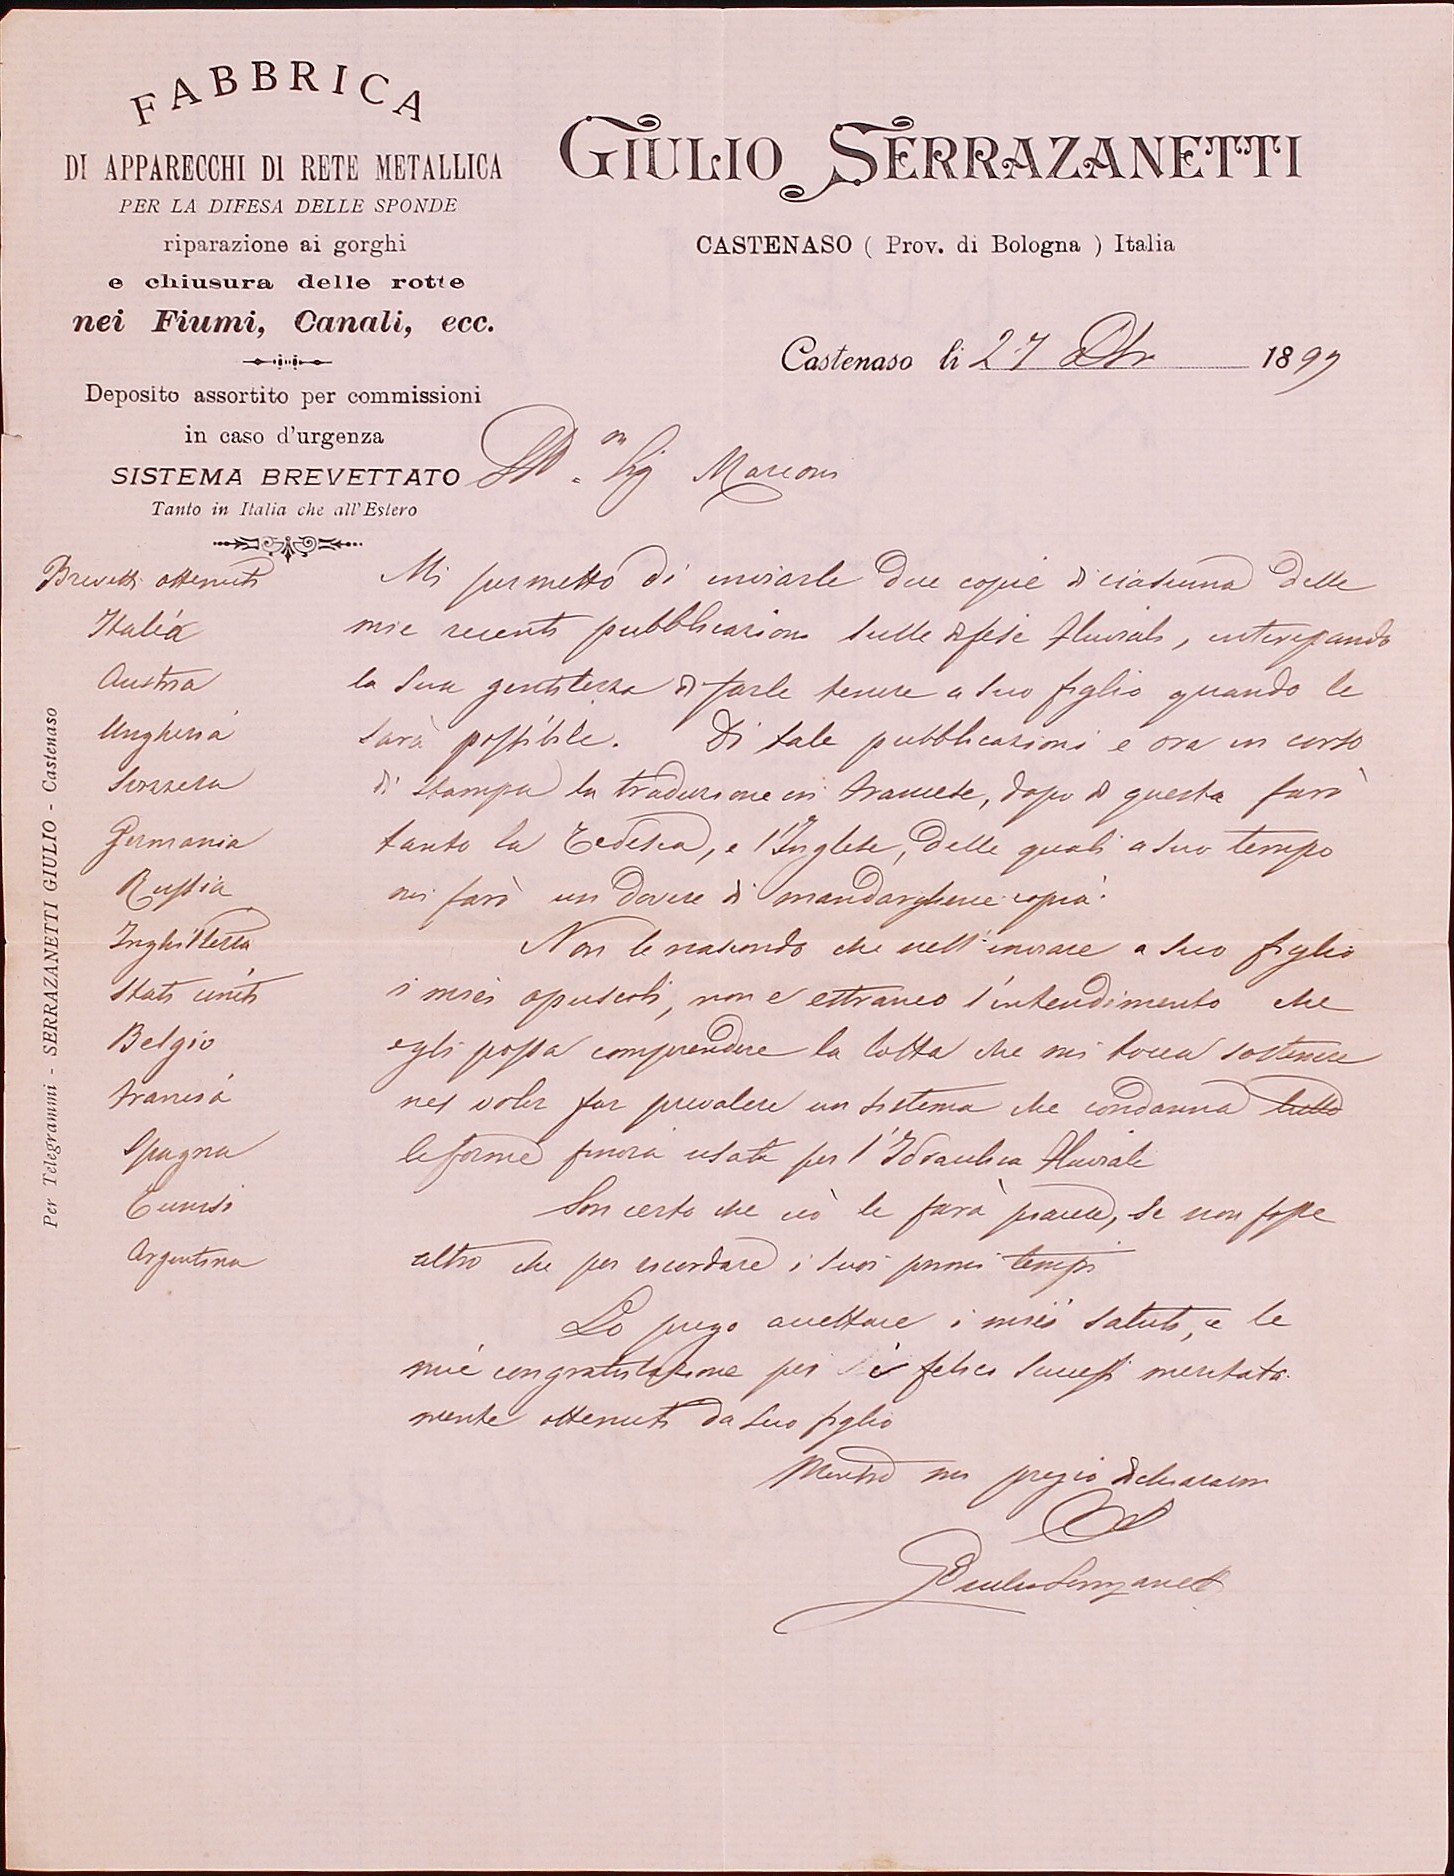 FABBRICA
DI APPARECCHI DI RETE METALLICA
PER LA DIFESA DELLE SPONDE
riparazione ai gorghi
e chiusura delle rotte
nei Fiumi, Canali, ecc.
Deposito assortito per commissioni
in caso d'urgenza
SISTEMA BREVETTATO
Tanto in Italia che all'Estero
GIULIO SERRAZANETTI
CASTENASO ( Prov. di Bologna ) Italia
Castenaso li 27 1897
Sig Marconi
Brevetti ottenuti
Italia
Austria
Ungheria
Svizzera
Germania
Russia
Inghilterra
Stati uniti
Belgio
Francia
Spagna
Tunisi
Argentina
Per Telegrammi - SERRAZANETTI GIULIO - Castenaso
Mi permetto di inviarle due copie di ciascuna delle
mie recenti pubblicazioni sulle difese fluviali, interepando
la sua gentilezza di farle tenere a suo figlio quando le
sarà possibile. Di tale pubblicazioni e ora in corso
di stampa la traduzione in francese, dopo di questa farò
tanto la Tedesca, e l'Inglese, delle quali a suo tempo
mi farò un dovere di mandarghene copia.
Non le nascondo che nell'inviare a suo figlio
i miei opuscoli, non e' estraneo l'intendimento che
egli possa comprendere la lotta che mi tocca sostenere
nel voler far prevalere un sistema che condanna tutto
le forme finora usate per l'Idraulica fluviale
Son certo che ciò le farà piacere, se non fosse
altro che per ricordare i suoi primi tempi
La prego accettare i miei saluti, e le
mie congratulazione per i felici successi meritata
mente ottenuti da suo figlio
Mentre mi pregio dichiararmi
Giulio Serrazanetti